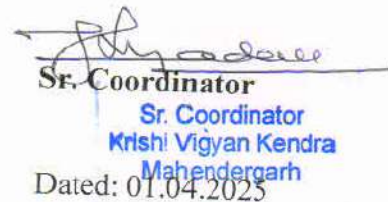 Sr. Coordinator
Sr. Coordinator
Krishi Vigyan Kendra
Mahendergarh
Dated: 01.04.2025